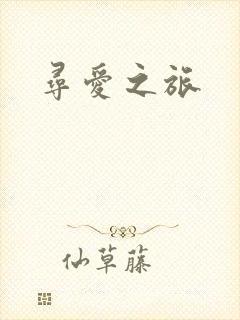 尋愛之旅
仙草藤